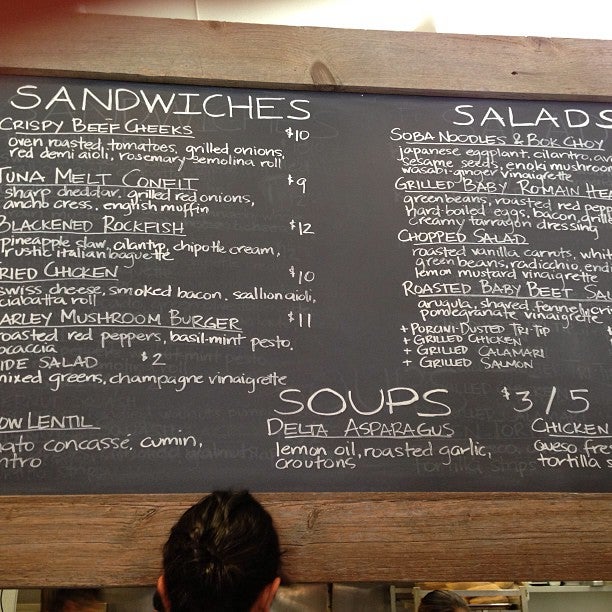 SANDWICHES
CRISPY BEEF CHEEKS $10
oven roasted tomatoes, grilled onions,
red demi aioli, rosemary semolina roll
TUNA MELT CONFIT $9
sharp cheddar, grilled red onions,
ancho cress, english muffin
BLACKENED ROCKFISH $12
pineapple slaw, cilantro, chipotle cream,
rustic italian baguette
RIED CHICKEN $10
swiss cheese, smoked bacon, scallion aioli,
ciabatta roll
ARLEY MUSHROOM BURGER $11
roasted red peppers, basil-mint pesto,
ocaccia
IDE SALAD $2
mixed greens, champagne vinaigrette
SALADS
SOBA NOODLES & BOK CHOY
japanese eggplant, cilantro,
sesame seeds, enoki mushroom
wasabi-ginger vinaigrette
GRILLED BABY ROMAIN HEA
green beans, roasted red pepp
hard boiled eggs, bacon, grill
creamy tarragon dressing
CHOPPED SALAD
roasted vanilla carrots, whit
green beans, radicchio, end
lemon mustard vinaigrette
ROASTED BABY BEET SA
arugula, shaved fennel,
pomegranate vinaigrette
+ PORCINI-DUSTED TRI-TIP
+ GRILLED CHICKEN
+ GRILLED CALAMARI
+ GRILLED SALMON
SOUPS $3/5
OW LENTIL
ato concassé, cumin,
ntro
DELTA ASPARAGUS
lemon oil, roasted garlic,
croutons
CHICKEN
queso fre
tortilla s